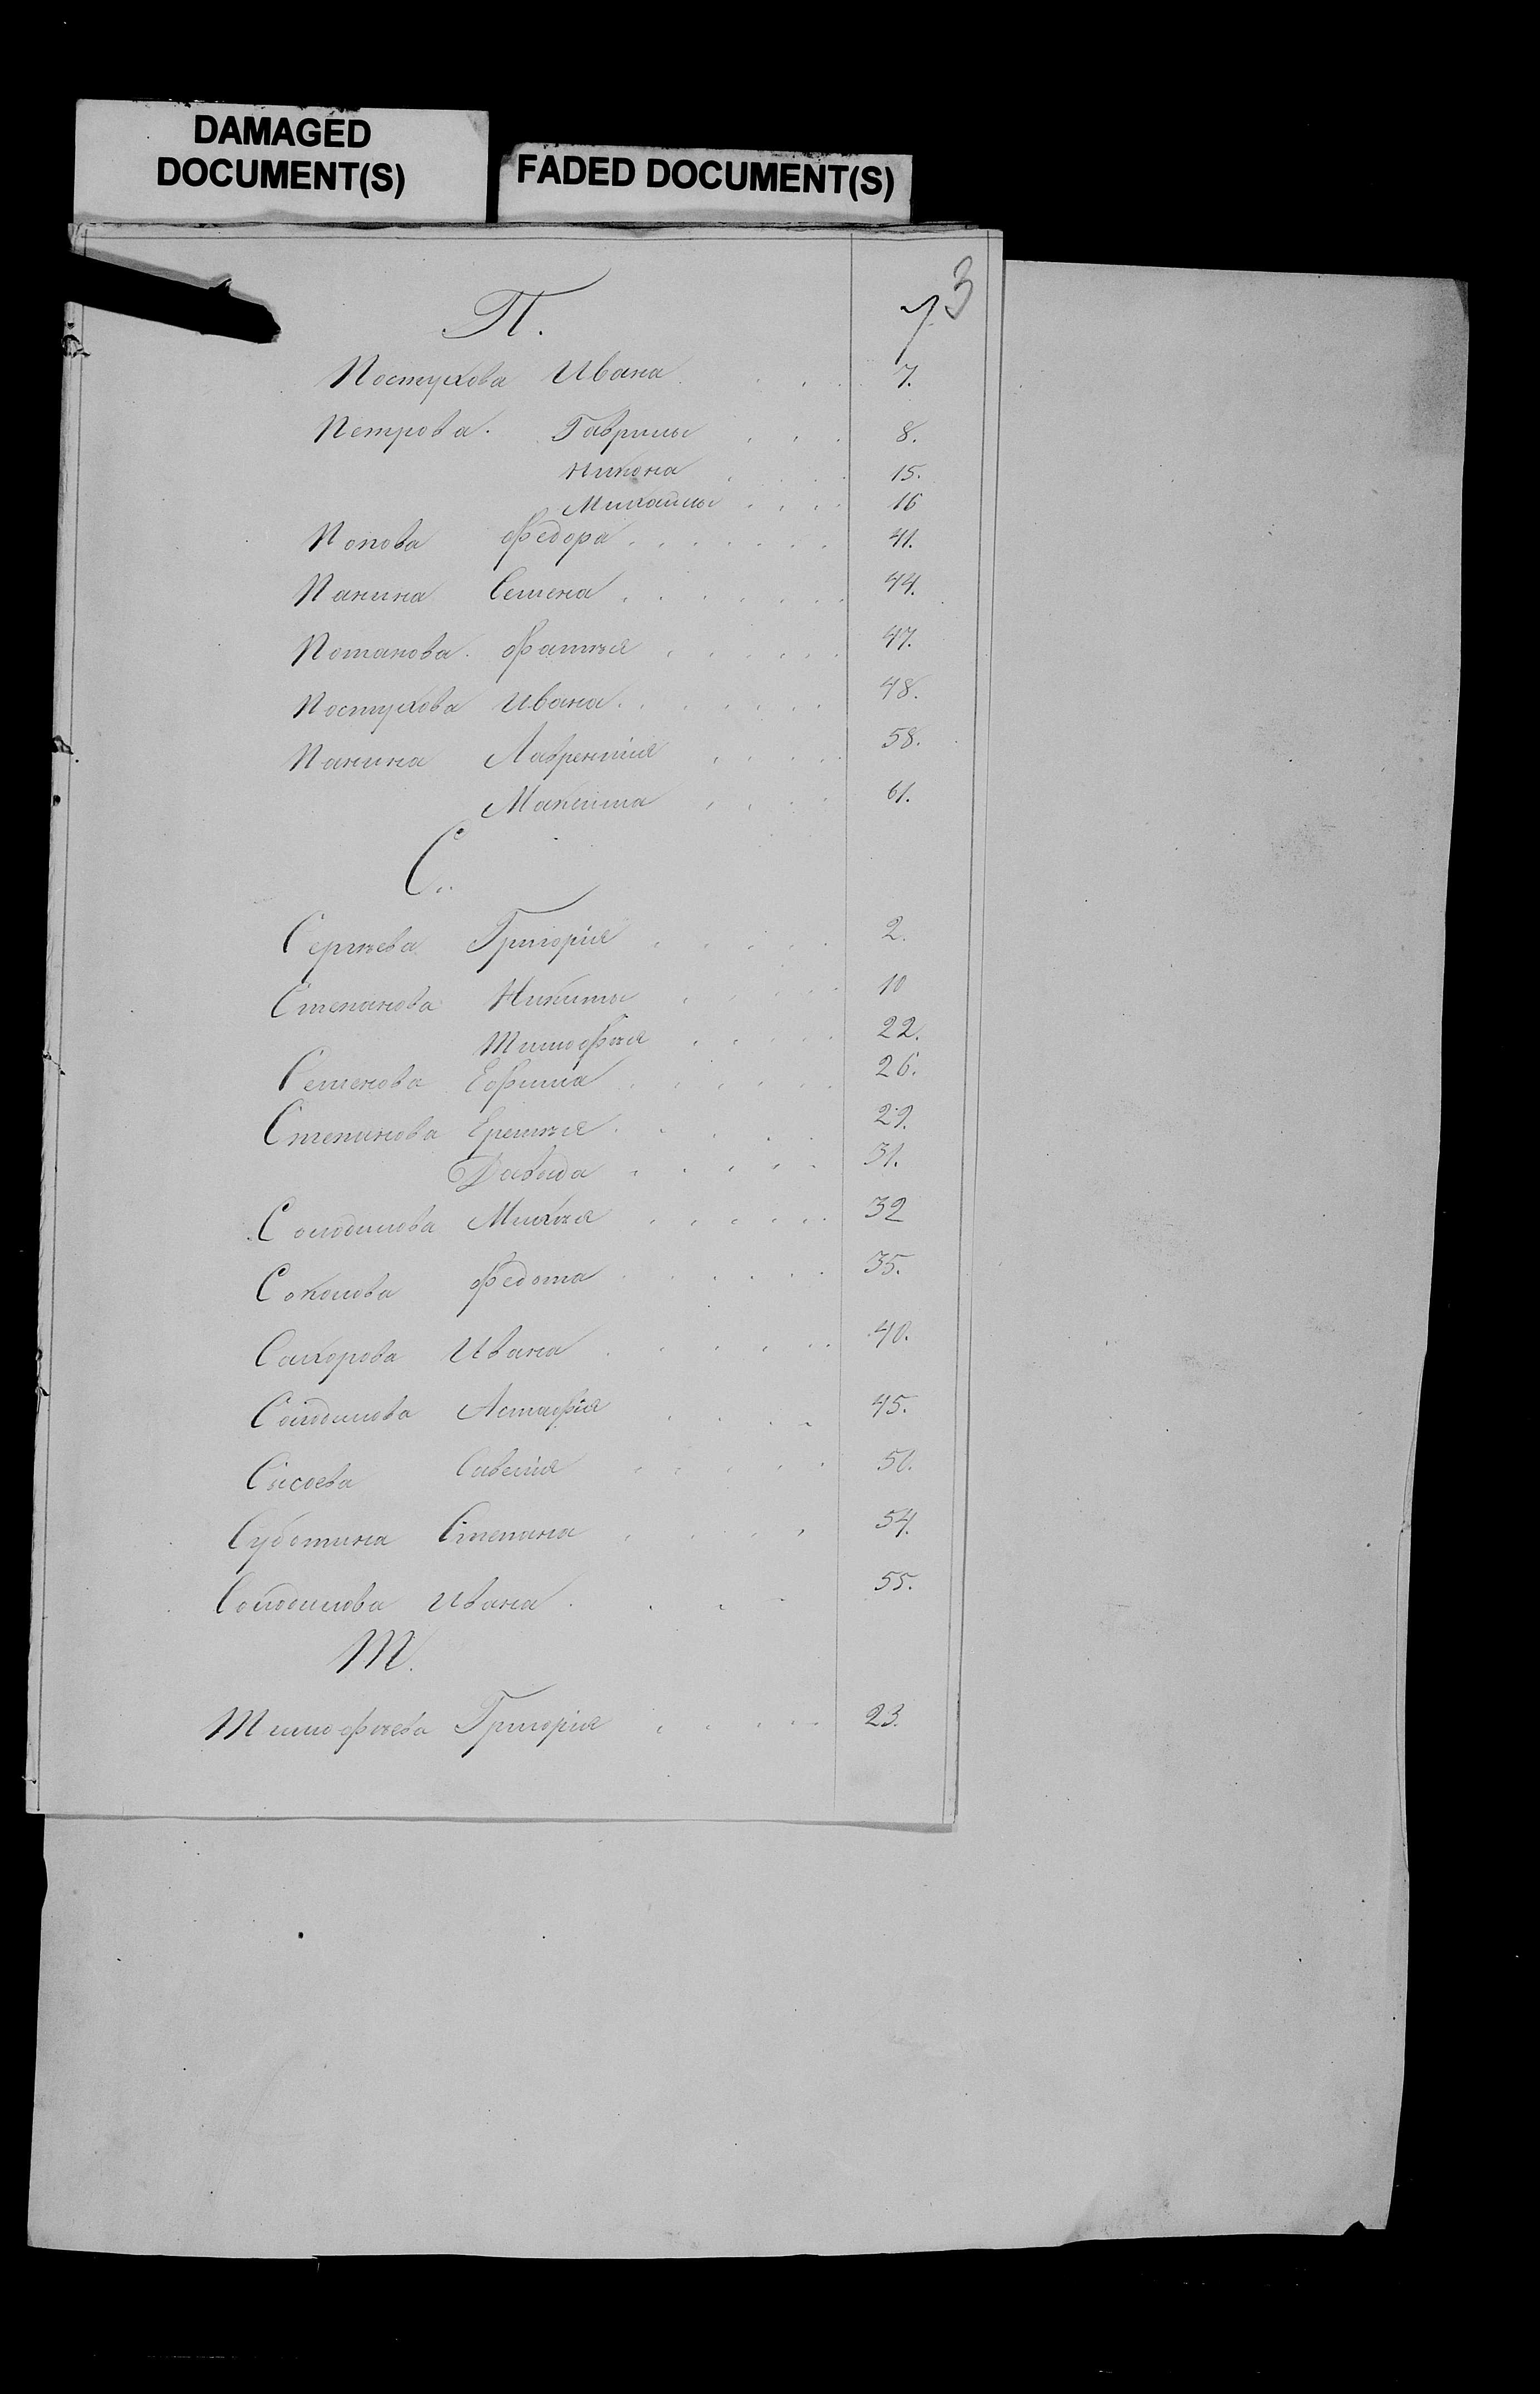 DAMAGED
DOCUMENT(S)
FADED DOCUMENT(S)
3
П. 7.
Постухова Ивана 7.
Петрова. Гаврилы 8.
Никона 15.
Михайлы 16
Попова Федора 41.
Панина Семена 44.
Потапова. 47.
Постухова Ивана 48.
Панина Лаврентія 58.
Максима 61.
С.
Сергѣева Григорія 2.
Степанова Никиты 10
Тимофѣя 22.
Семенова Ефима 26.
Степанова Еремѣя 29.
Давыда 31.
Солодилова Михѣя 32
Соколова Федота 35.
Сахорова Ивана 40.
Солодилова Астафія 45.
Сысоева Савелія 51.
Суботина Степана 54.
Солодилова Ивана 55.
Т.
Тимофѣева Григорія 23.